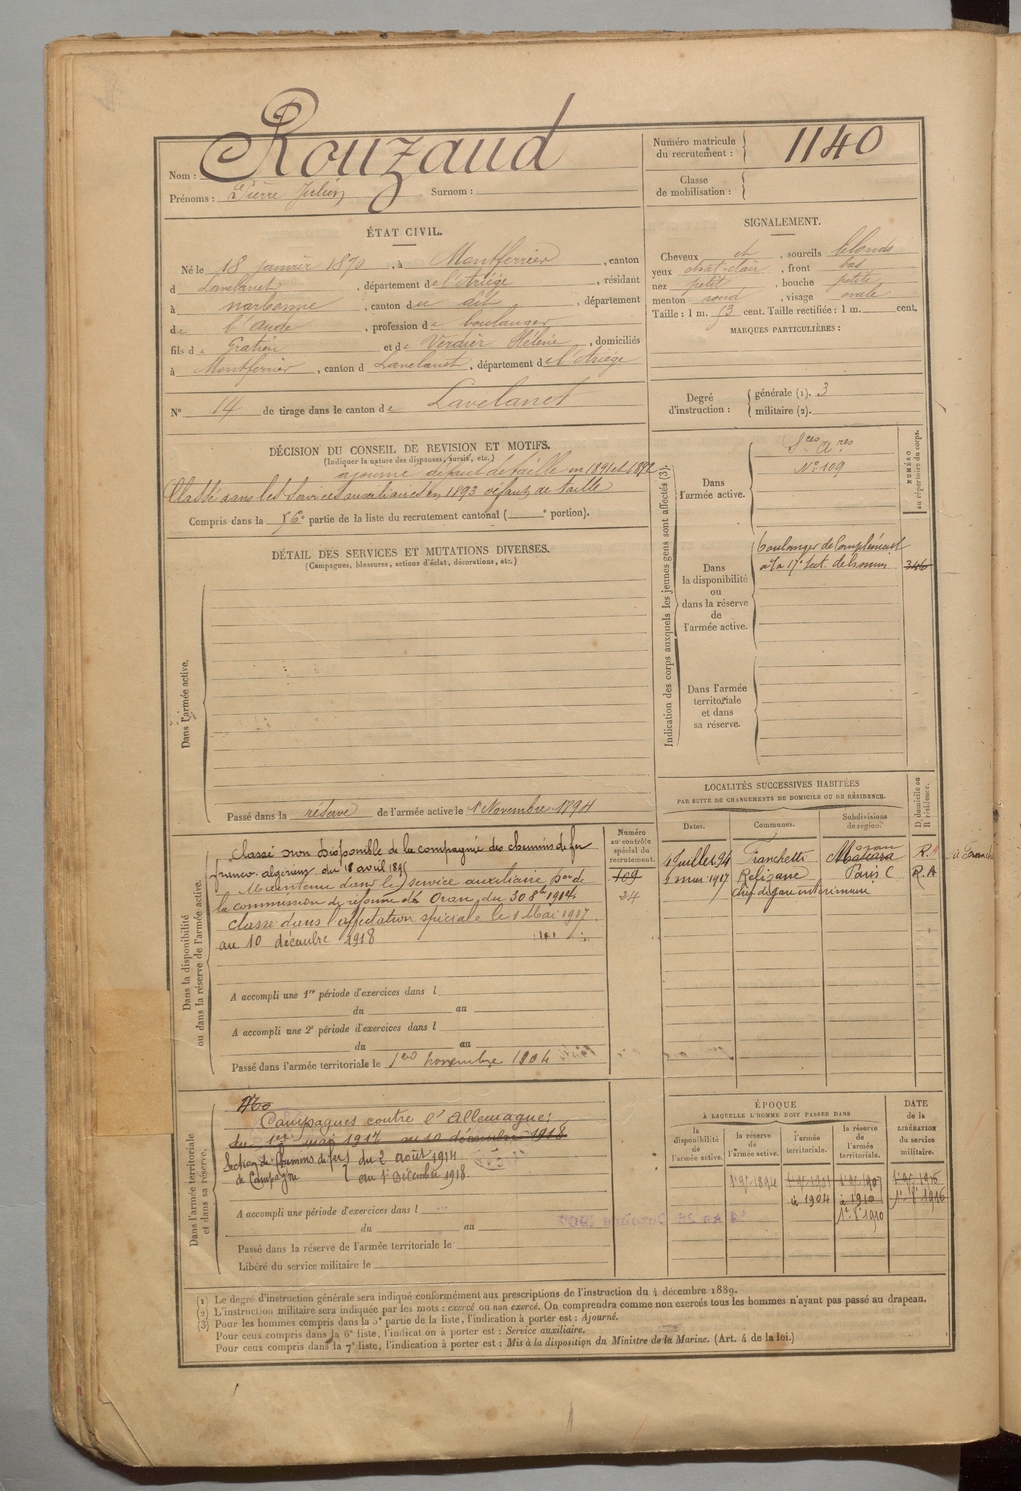 Nom : Rouzaud
Prénoms : Pierre Julien Surnom :
Numéro matricule du recrutement : 1140
Classe de mobilisation :
ÉTAT CIVIL.
Né le 18 janvier 1870, à Montferrier, canton
d Lavelanet, département de l'Ariège, résidant
à narbonne, canton du dit, département
de l'aude, profession de boulanger
fils de Gratien et de Verdier Hélène, domiciliés
à Montferrier, canton d Lavelanet, département de l'Ariège
N° 14 de tirage dans le canton de Lavelanet
SIGNALEMENT.
Cheveux et, sourcils blonds
yeux chât-clair, front bas
nez petit, bouche petite
menton rond, visage ovale
Taille : 1 m. 53 cent. Taille rectifiée : 1 m. cent.
MARQUES PARTICULIÈRES :
Degré d'instruction : générale (1). 3
militaire (2).
DÉCISION DU CONSEIL DE REVISION ET MOTIFS.
(Indiquer la nature des dispenses, sursis, etc.)
ajourné défaut de taille en 1891 et 1892
Classé dans les services auxiliaires en 1893 défaut de taille
Compris dans la 6e partie de la liste du recrutement cantonal ( e portion).
DÉTAIL DES SERVICES ET MUTATIONS DIVERSES.
(Campagnes, blessures, actions d'éclat, décorations, etc.)
Dans l'armée active.
Passé dans la réserve de l'armée active le 1er Novembre 1894
Indication des corps auxquels les jeunes gens sont affectés (3).
NUMÉRO au répertoire du corps.
Dans l'armée active.
Sces Aires
N° 109
Dans la disponibilité ou dans la réserve de l'armée active.
boulanger de complément
à la 17e sect. de commis
346
Dans l'armée territoriale et dans sa réserve.
LOCALITÉS SUCCESSIVES HABITÉES
PAR SUITE DE CHANGEMENTS DE DOMICILE OU DE RÉSIDENCE.
Dates. Communes. Subdivisions de région. D. domicile ou R. résidence.
Juillet 94 Franchetti Mascara Oran R.
mai 1917 Relizane Paris C R. A
chef de gare intérimaire
Dans la disponibilité ou dans la réserve de l'armée active.
Numéro au contrôle spécial du recrutement.
109
24
Classé non disponible de la compagnie des chemins de fer
franco-algériens du 18 avril 189
Maintenu dans le service auxiliaire Don de
la commission de réforme d'Oran du 30 8bre 1914
classé dans l'affectation spéciale le 1 Mai 1917
au 10 décembre 1918
A accompli une 1re période d'exercices dans l
du au
A accompli une 2e période d'exercices dans l
du au
Passé dans l'armée territoriale le 1er novembre 1904
Dans l'armée territoriale et dans sa réserve.
Campagnes contre l'Allemagne :
du 1er mai 1917 au 10 décembre 1918
Section de Chemins de fers du 2 août 1914
de Campagne au 1er Décembre 1918.
A accompli une période d'exercices dans l
du au
Passé dans la réserve de l'armée territoriale le
Libéré du service militaire le
ÉPOQUE
À LAQUELLE L'HOMME DOIT PASSER DANS
DATE de la LIBÉRATION du service militaire.
la disponibilité de l'armée active. la réserve de l'armée active. l'armée territoriale. la réserve de l'armée territoriale.
(1) Le degré d'instruction générale sera indiqué conformément aux prescriptions de l'instruction du 4 décembre 1889.
(2) L'instruction militaire sera indiquée par les mots : exercé ou non exercé. On comprendra comme non exercés tous les hommes n'ayant pas passé au drapeau.
(3) Pour les hommes compris dans la 5e partie de la liste, l'indication à porter est : Ajourné.
Pour ceux compris dans la 6e liste, l'indication à porter est : Service auxiliaire.
Pour ceux compris dans la 7e liste, l'indication à porter est : Mis à la disposition du Ministre de la Marine. (Art. 4 de la loi.)